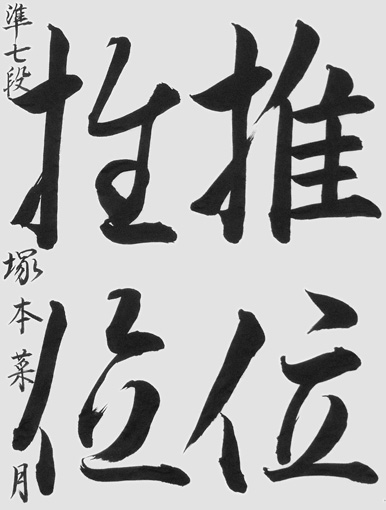 推位
推位
準七段 塚本菜月